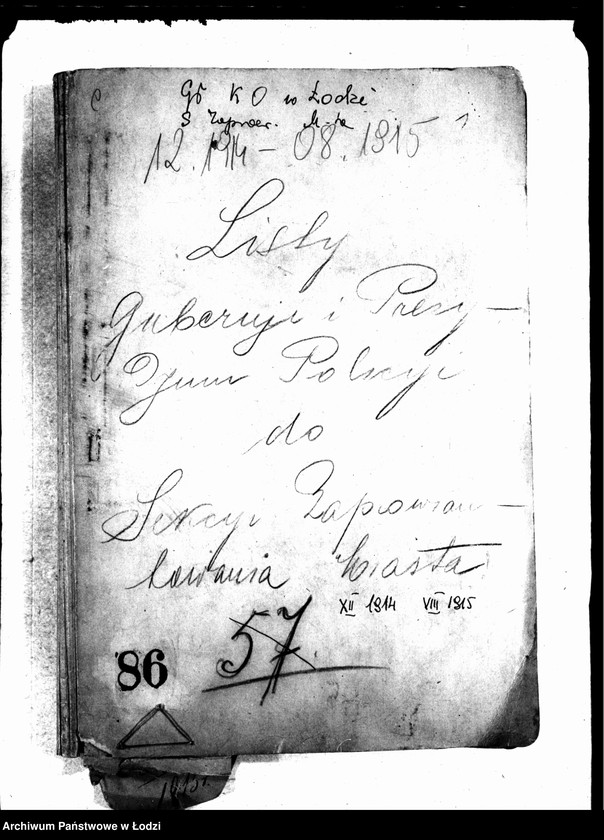 Gł K O w Łodzi
S Zaprow. M-ta
12.1914 - 08.1915
Listy
Gubernji i Prezy-
djum Policyi
do
Sekcyi Zaprowian-
towania Miasta
XII 1914 VIII 1915
57
86
1915r.
Archiwum Państwowe w Łodzi